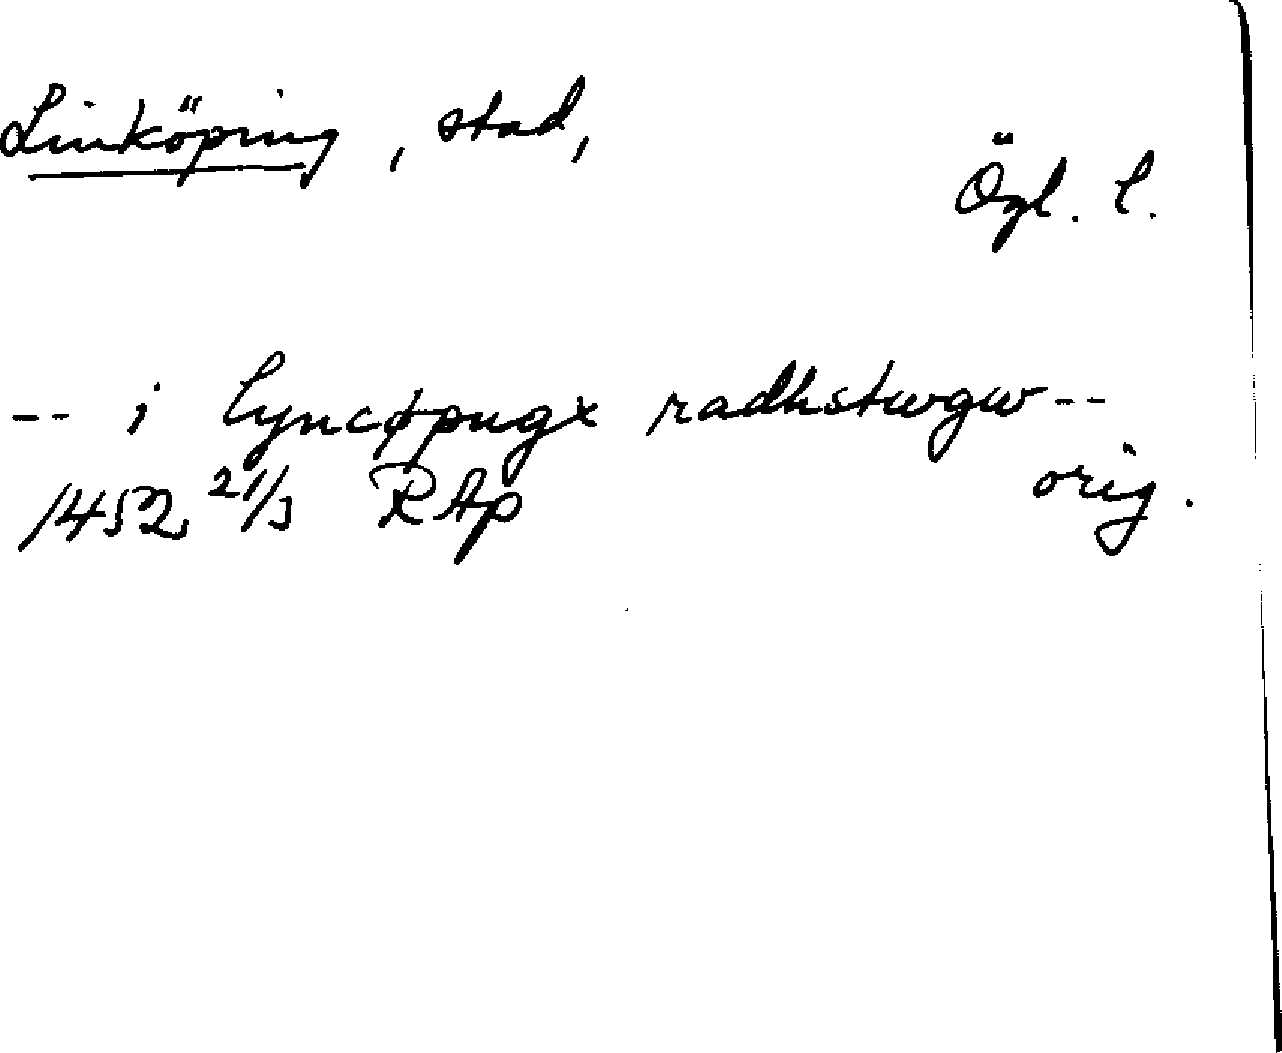 Linköping, stad,
Ögl. l.
-- i lyncøpugx radhstwgw --
1452 21/3 RAp
orig.